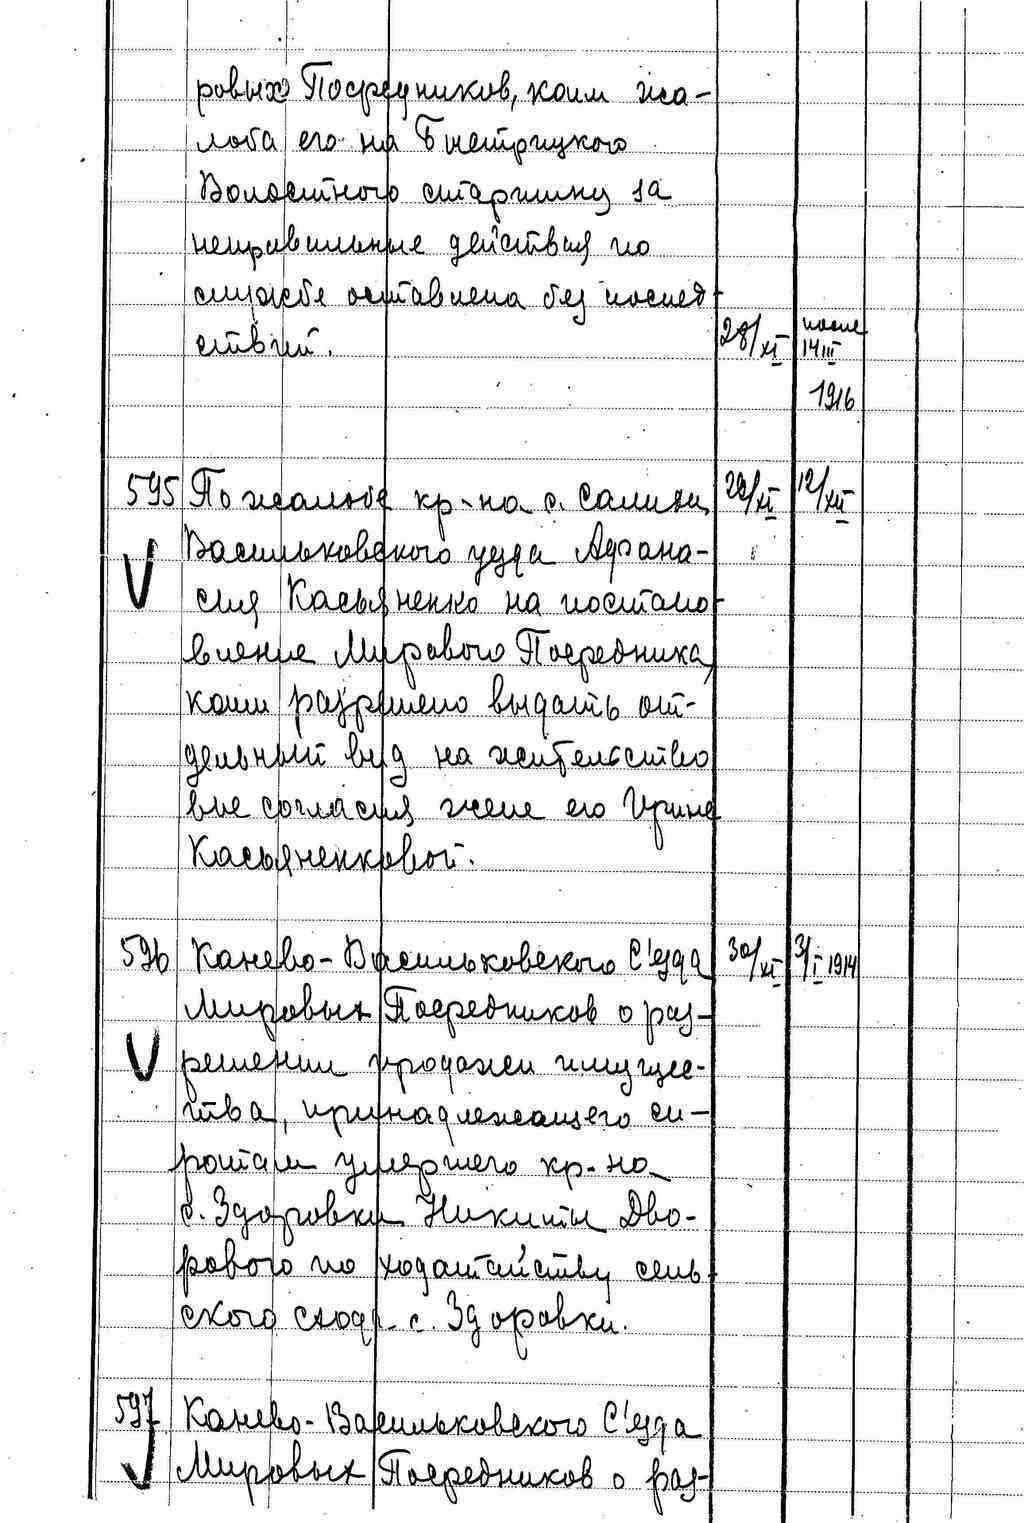 ровых Посредников, коим жа-
лоба его на Быстрицкого
Волостного старшину за
неправильные действия по
службе оставлена без послед-
ствий. 28/XI после 14 III 1916
595 По жалобе кр-на с. Салихи 29/XI 12/XII
Васильковского уезда Афана-
сия Касьяненко на постано-
вление Мирового Посредника,
коим разрешено выдать от-
дельный вид на жительство
вне согласия жене его Ирине
Касьяненковой.
596 Канево-Васильковского С'езда 30/XI 3/I 1914
Мировых Посредников о раз-
решении продажи имуще-
ства, принадлежащего си-
ротам умершего кр-на
с. Здоровки Никиты Дво-
рового по ходатайству сель-
ского сход. с. Здоровки.
597 Канево-Васильковского С'езда
Мировых Посредников о раз-